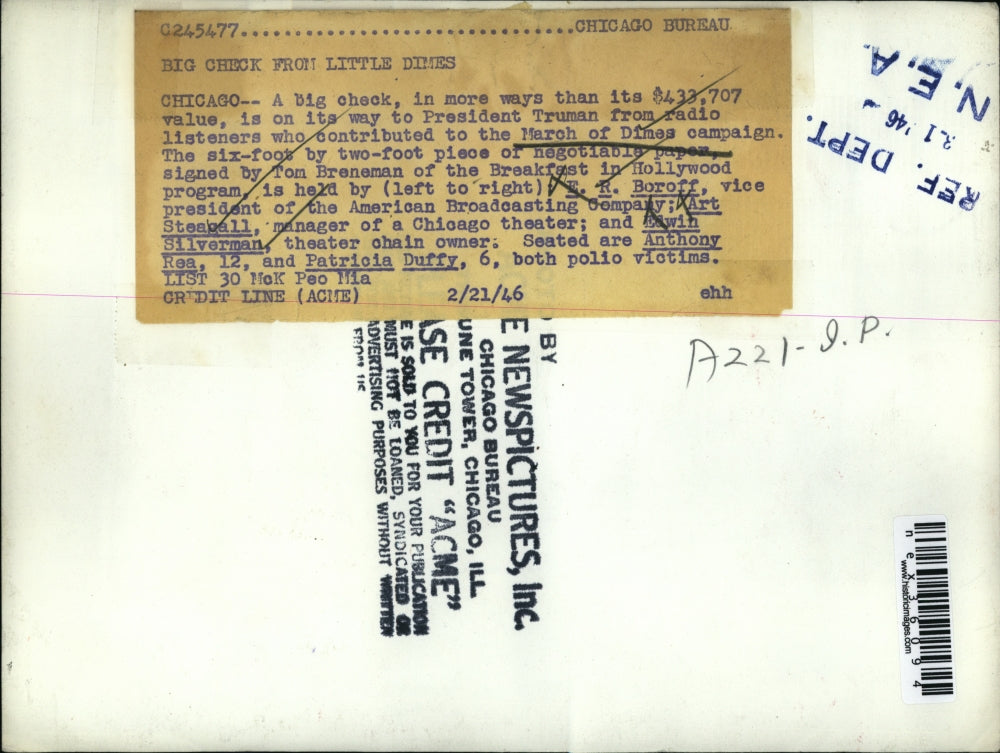 C245477................................CHICAGO BUREAU
BIG CHECK FROM LITTLE DIMES
CHICAGO-- A big check, in more ways than its $433,707
value, is on its way to President Truman from radio
listeners who contributed to the March of Dimes campaign.
The six-foot by two-foot piece of negotiable paper,
signed by Tom Breneman of the Breakfast in Hollywood
program, is held by (left to right) E. R. Boroff, vice
president of the American Broadcasting Company; Art
Steagall, manager of a Chicago theater; and Edwin
Silverman, theater chain owner. Seated are Anthony
Rea, 12, and Patricia Duffy, 6, both polio victims.
LIST 30 McK Peo Mia
CREDIT LINE (ACME) 2/21/46 ehh
N.E.A.
21 '46
REF. DEPT.
A221-I.P.
BY
E NEWSPICTURES, Inc.
CHICAGO BUREAU
UNE TOWER, CHICAGO, ILL.
ASE CREDIT "ACME"
E IS SOLD TO YOU FOR YOUR PUBLICATION
MUST NOT BE LOANED, SYNDICATED OR
ADVERTISING PURPOSES WITHOUT WRITTEN
FROM US
nex36094
www.historicimages.com